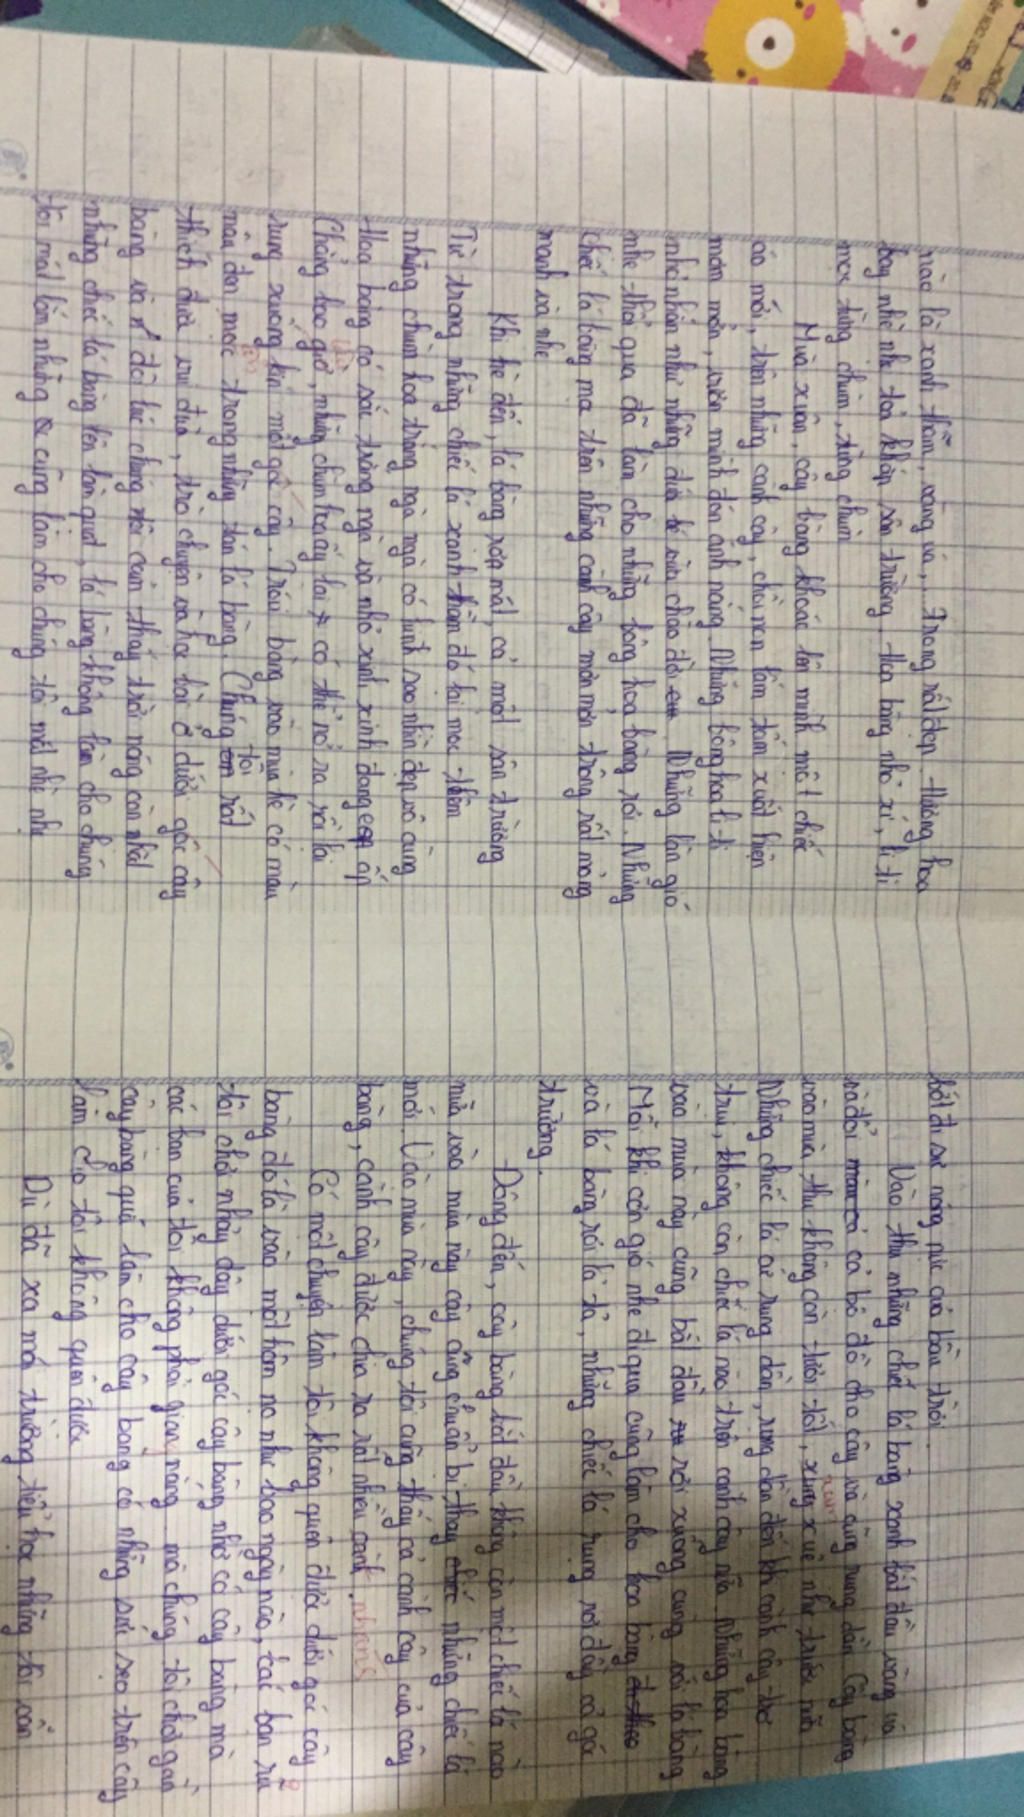 nào là xanh thẫm, vàng và,... Trông rất đẹp. Hương hoa
bay nhè nhẹ toả khắp sân trường. Hoa bàng nhỏ xí, li ti
mọc từng chùm, từng chùm
Mùa xuân, cây bàng khoác lên mình một chiếc
áo mới, trên những cành cây, chồi non lấm tấm xuất hiện
mơn mởn, vươn mình đón ánh nắng. Những bông hoa li ti
nhỏ nhắn như những đứa bé vừa chào đời. Những làn gió
nhẹ thổi qua đã làm cho những bông hoa bàng rơi. Những
chiếc lá bàng mà trên những cành cây mơn mởn trông rất mỏng
manh và nhẹ
Khi hè đến, lá bàng rợp mát cả một sân trường
Từ trong những chiếc lá xanh thẫm đó lại mọc thêm
những chùm hoa trắng ngà ngà có hình sao nhìn đẹp vô cùng
Hoa bàng có sắc trắng ngà và nhỏ xinh xinh đang ấp
Chẳng bao giờ, những chùm hoa ấy lại có thể nở ra rồi lại
rụng xuống kín một gốc cây. Trái bàng vào mùa hè có màu
nâu đen mọc trong những tán lá bàng. Chúng tôi rất
thích đùa vui đùa, trò chuyện và học bài ở dưới gốc cây
bàng và đôi lúc chúng tôi cảm thấy trời nóng còn nhặt
những chiếc lá bàng lên làm quạt, lá bàng không làm cho chúng
tôi mát lắm nhưng cũng làm cho chúng tôi mát nhè nhẹ
bớt đi sự nóng nực của bầu trời.
Vào thu những chiếc lá bàng xanh bắt đầu vàng và
và đổi màu cả bộ đồ cho cây và cũng rụng dần. Cây bàng
vào mùa thu không còn tươi tốt, xum xuê như trước nữa
Những chiếc lá cứ rụng dần, rụng dần đến khi cành cây trơ
trụi, không còn chiếc lá nào trên cành cây nữa. Những hoa bàng
vào mùa này cũng bắt đầu rơi xuống cùng với lá bàng
Mỗi khi cơn gió nhẹ đi qua cũng làm cho hoa bàng
và lá bàng rơi lả tả, những chiếc lá rụng rơi đầy cả góc
trường.
Đông đến, cây bàng bắt đầu không còn một chiếc lá nào
nữa vào mùa này cây cũng chuẩn bị thay những chiếc lá
mới. Vào mùa này, chúng tôi cũng thấy cả cành cây của cây
bàng, cành cây được chia ra rất nhiều cành nhánh
Có một chuyện làm tôi không quên được dưới gốc cây
bàng đó là vào một hôm nọ như bao ngày nào, các bạn rủ
tôi chơi nhảy dây dưới gốc cây bàng nhờ có cây bàng mà
các bạn của tôi không phải giang nắng mà chúng tôi chơi gần
cây bàng quá làm cho cây bàng có những vết sẹo trên cây
làm cho tôi không quên được
Dù đã xa mái trường tiểu học nhưng tôi vẫn